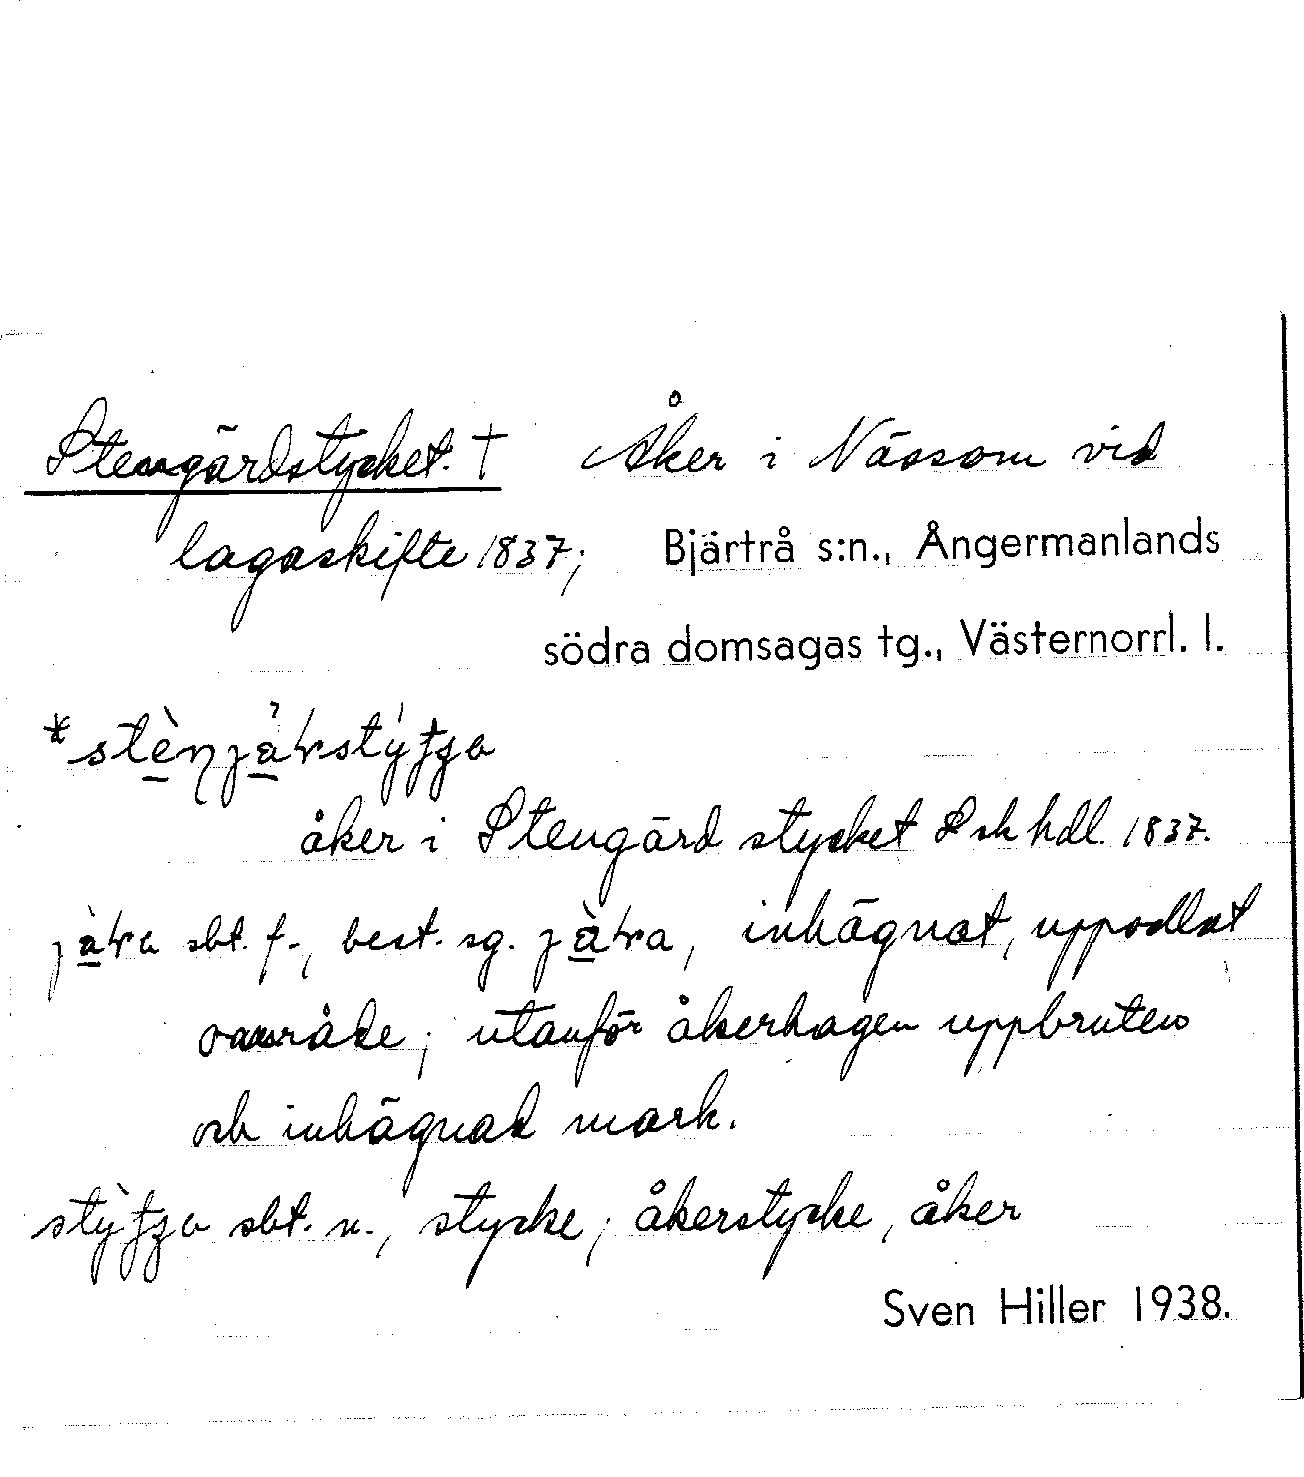 Stengärdstycket. † Åker i Nässom vid
lagaskifte 1837; Bjärtrå s:n., Ångermanlands
södra domsagas tg., Västernorrl. l.
åker i Stengärd stycket Lskhdl. 1837.
sbt. f., best. sg. inhägnat, uppodlat
område; utanför åkerhagen uppbruten
och inhägnad mark.
sbt. n., stycke; åkerstycke, åker
Sven Hiller 1938.